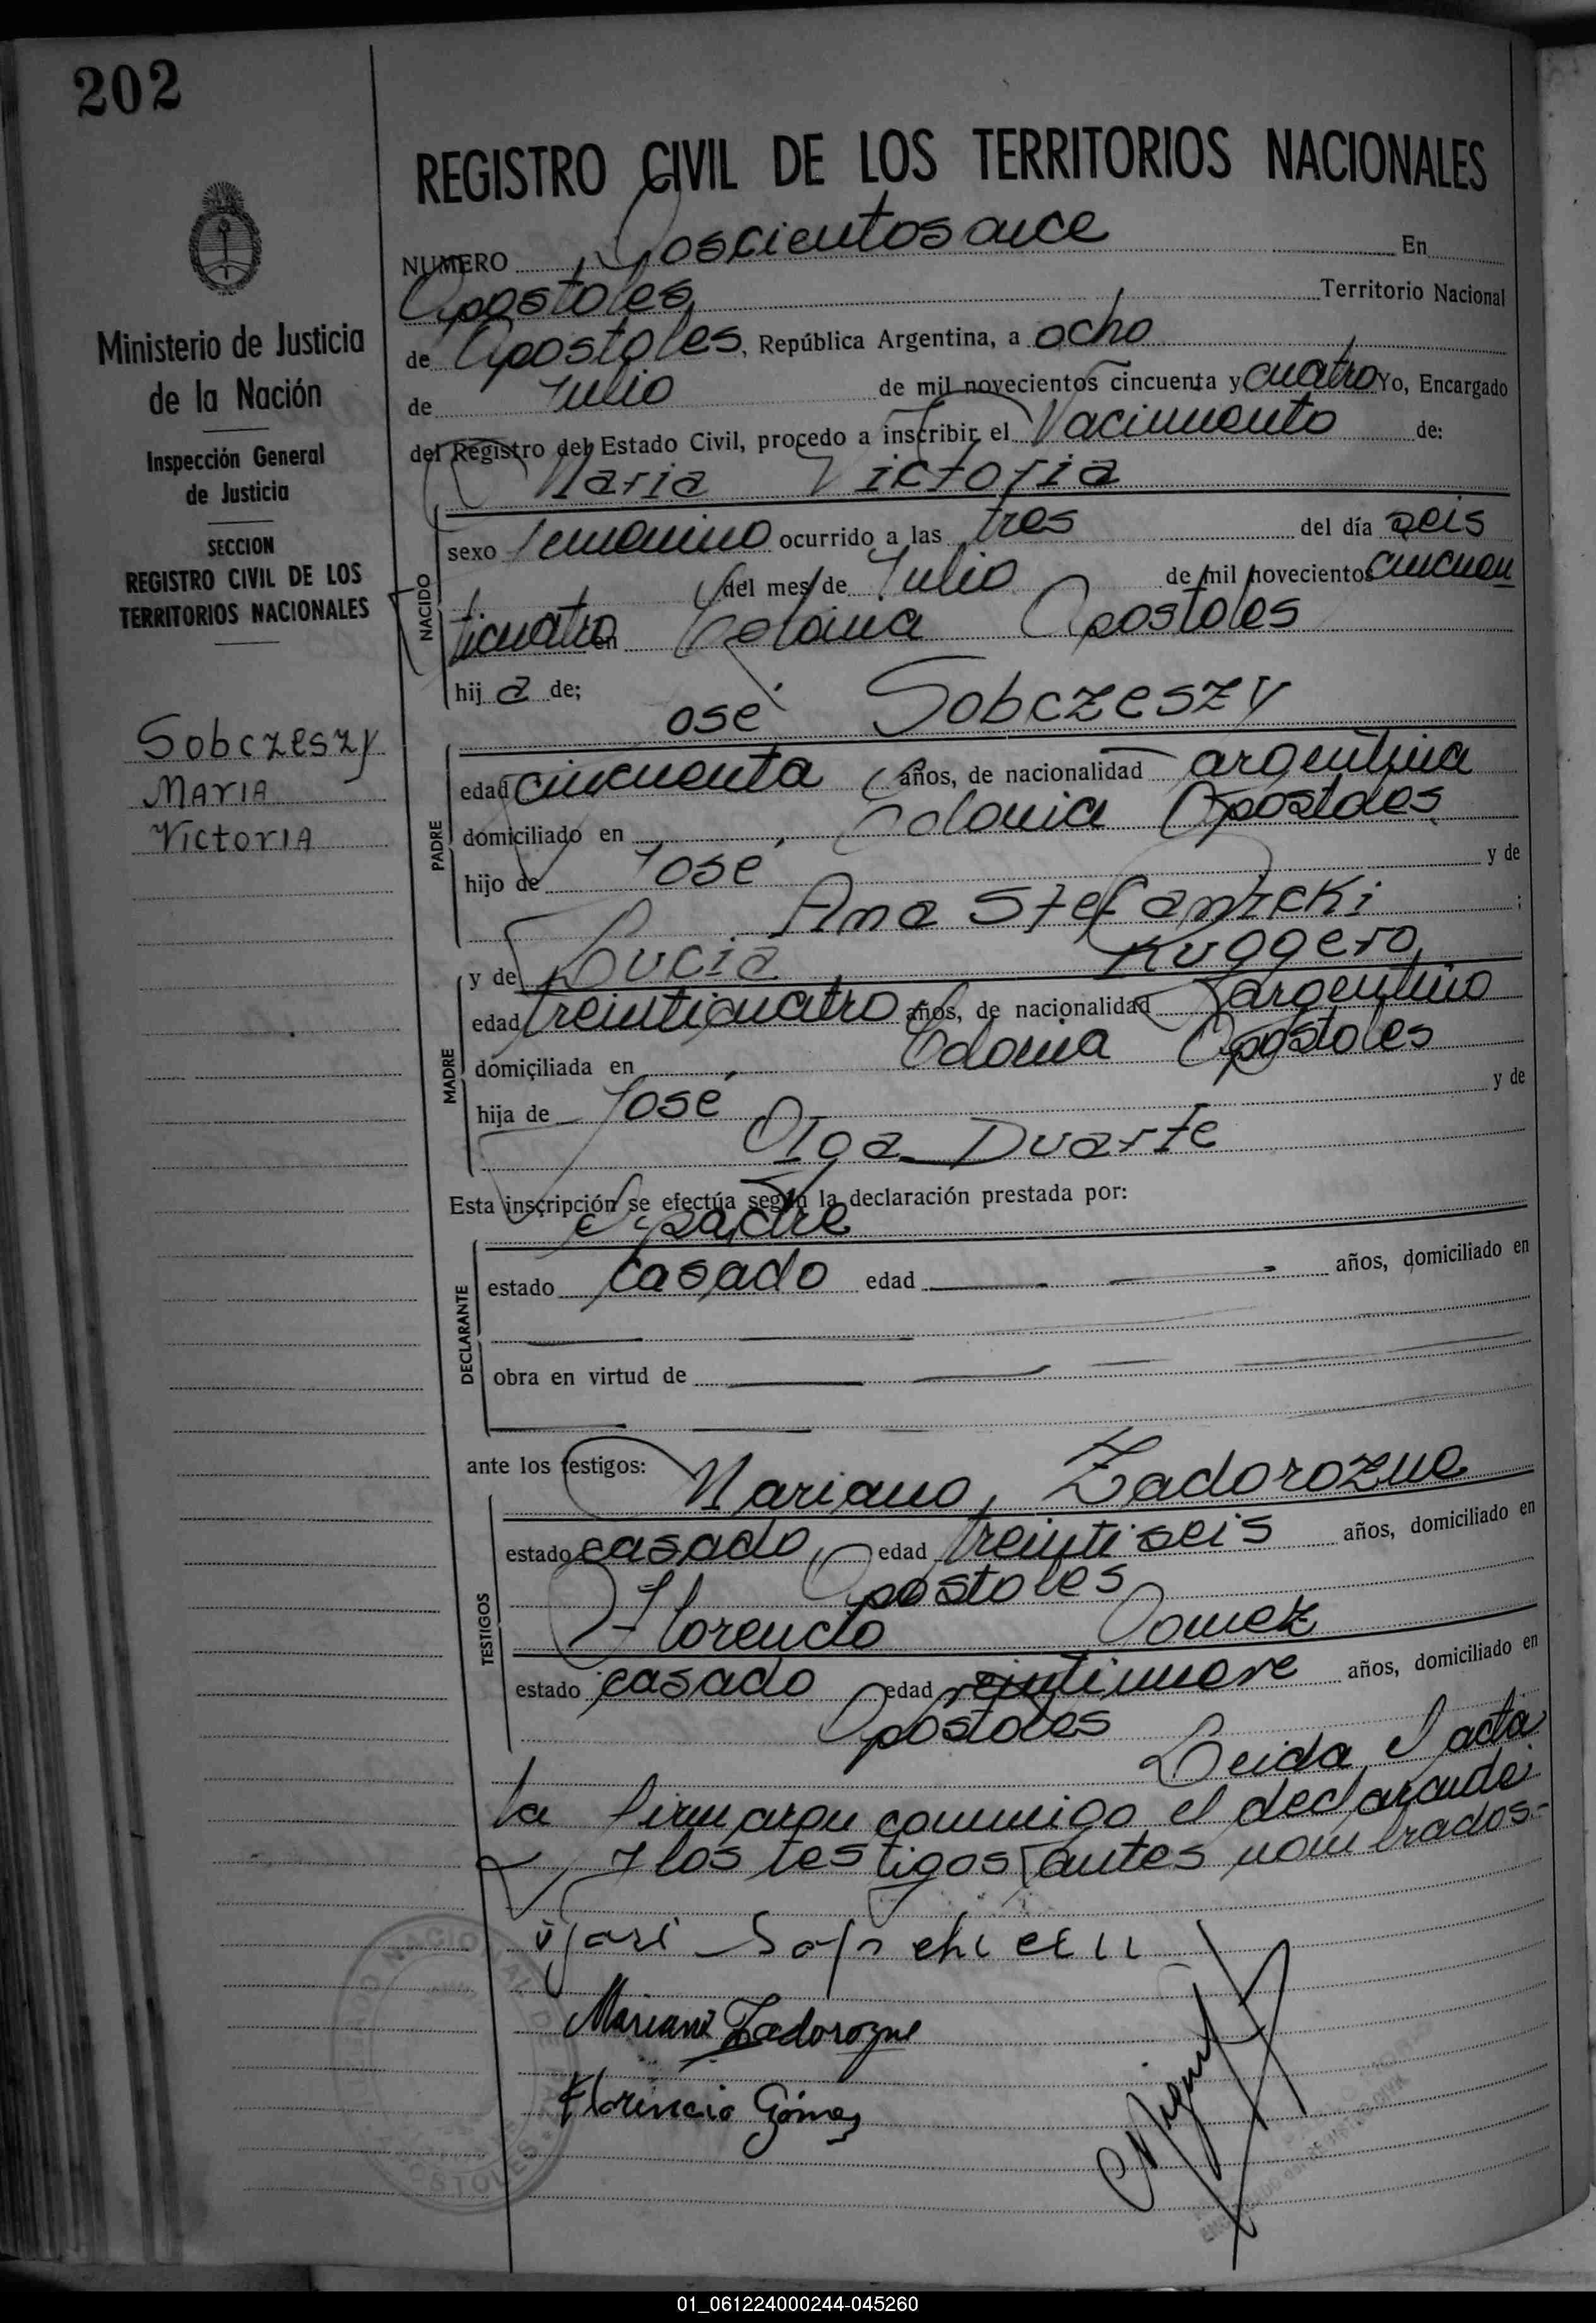 202
REGISTRO CIVIL DE LOS TERRITORIOS NACIONALES
NUMERO Doscientos once En
Apostoles Territorio Nacional
de Apostoles, República Argentina, a ocho
de Julio de mil novecientos cincuenta y cuatro Yo, Encargado
del Registro del Estado Civil, procedo a inscribir el Nacimiento de:
Maria Victoria
NACIDO
sexo femenino ocurrido a las tres del día seis
del mes de Julio de mil novecientos cincuen
ticuatro en Colonia Apostoles
hij a de;
José Sobczeszy
PADRE
edad cincuenta años, de nacionalidad argentina
domiciliado en Colonia Apostoles
hijo de José y de
Ana Stefanicki ;
y de Lucia Ruggero
MADRE
edad treinticuatro años, de nacionalidad argentino
domiciliada en Colonia Apostoles
hija de José y de
Olga Duarte
Esta inscripción se efectúa según la declaración prestada por:
el padre
DECLARANTE
estado casado edad años, domiciliado en
obra en virtud de
ante los testigos:
Mariano Zadorozne
TESTIGOS
estado casado edad treintiseis años, domiciliado en
Apostoles
Florencio Gomez
estado casado edad veintinueve años, domiciliado en
Apostoles
Leida el acta
la firmaron conmigo el declarante
y los testigos antes nombrados.-
Mariano Zadorozne
Florencio Gómez
Ministerio de Justicia
de la Nación
Inspección General
de Justicia
SECCION
REGISTRO CIVIL DE LOS
TERRITORIOS NACIONALES
Sobczeszy
MARIA
VictoRIA
01_061224000244-045260